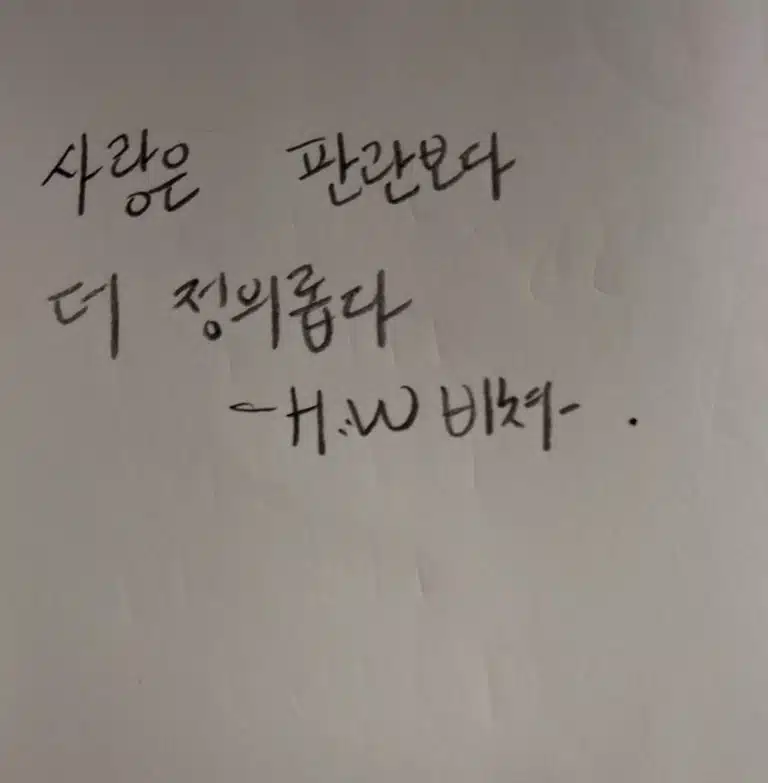 사랑은 판관보다
더 정의롭다
-H.W 비쳐- .